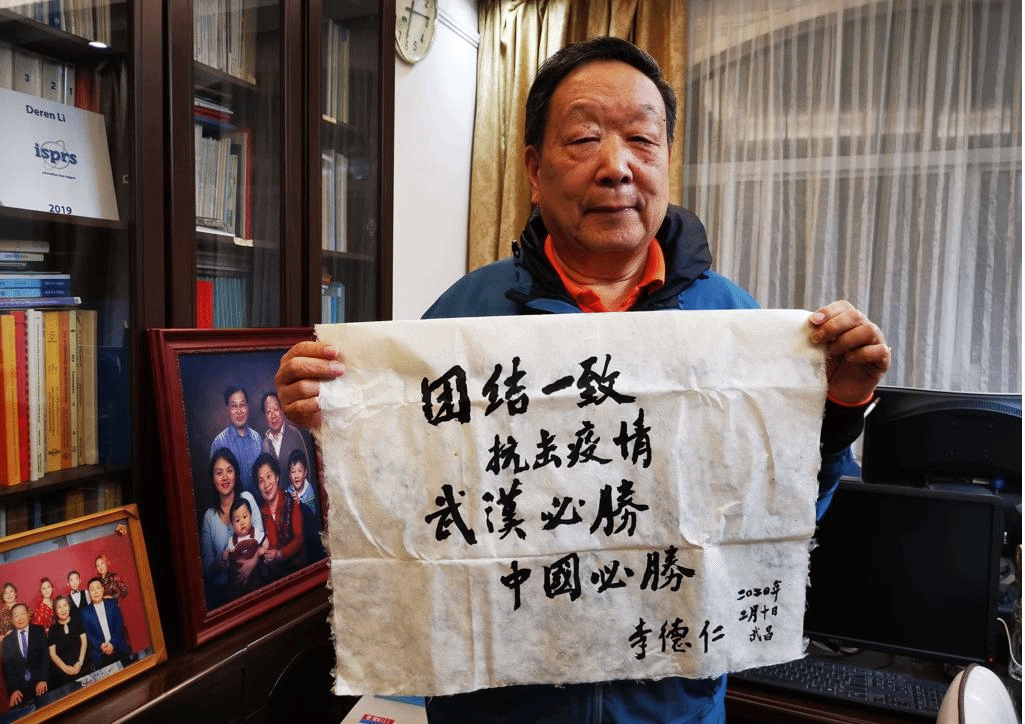 Deren Li
isprs
2019
3
2
1
团结一致
抗击疫情
武漢必勝
中國必勝
李德仁
二〇二〇年
二月十日
武昌